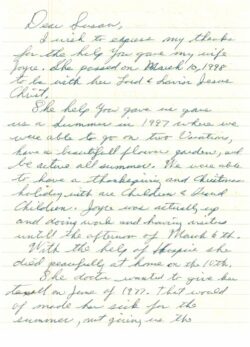 Dear Susan,
I wish to express my thanks
for the help you gave my wife
Joyce. She passed on March 10, 1998
to be with her Lord & Savior Jesus
Christ.
The help you gave us gave
us a summer in 1997 where we
were able to go on two Vacations,
have a beautifull flower garden, and
be active all summer. We were able
to have a thanksgiving and Christmas
holiday with are Children & Grand
Children. Joyce was actually up
and doing work and having visitors
untill the afternoon of March 6th.
With the help of Hospice she
died peacefully at home on the 10th.
The doctor wanted to give her
on June of 1997. That would
of made her sick for the
summer, not giving us the